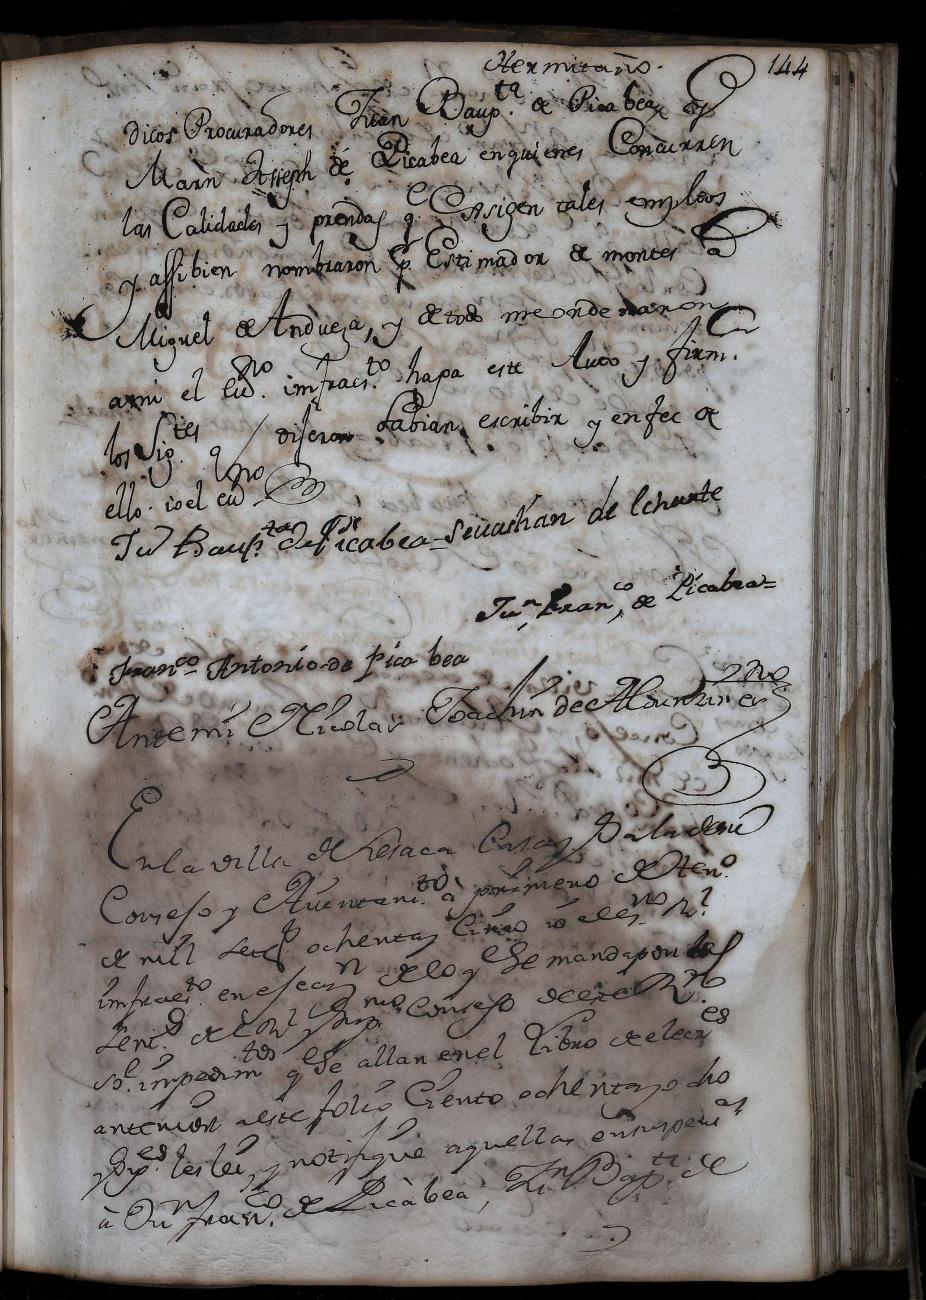 Hermitaño. 144
dicos Procuradores Juan Baupta. de Picabea, y
Marn Joseph de Picabea en quienes Concurren
las Calidades y prendas q.e Exsigen tales empleos
y assibien nombraron p.r Estimador de montes à
Miguel de Andueza, y de todo me ordenaron
ami el ess.no infraes.to haga este Auto y firm.
los Sig.tes q.e dijeron Sabian escribir y en fee de
ello io el ess.no
Ju Baup.ta de Picabea = Seuastian de Ichaste
Ju.n Fran.co de Picabea =
Fran.co Antonio de picabea
Antemi Nicolas Joachin de ss.no
En la villa de Lesaca Casas y Sala de su
Consejo y Auntam.to à primero de Hen.o
de mill sete.s ochenta y Cinco io el es.no R.l
infraes.to en esecu.n de lo q.e Se manda por las
Sent.s de el R.l y Sup.mo Consejo de este R.no
s.e impedim.tos q.e Se allan en el Libro de elec.es
anterior à este folio Ciento ochenta y ocho
y Sig.es les lei y notifique aquellas en sus pers.as
à Ju.n Fran.co de Picabea, Ju.n Bap.ta de